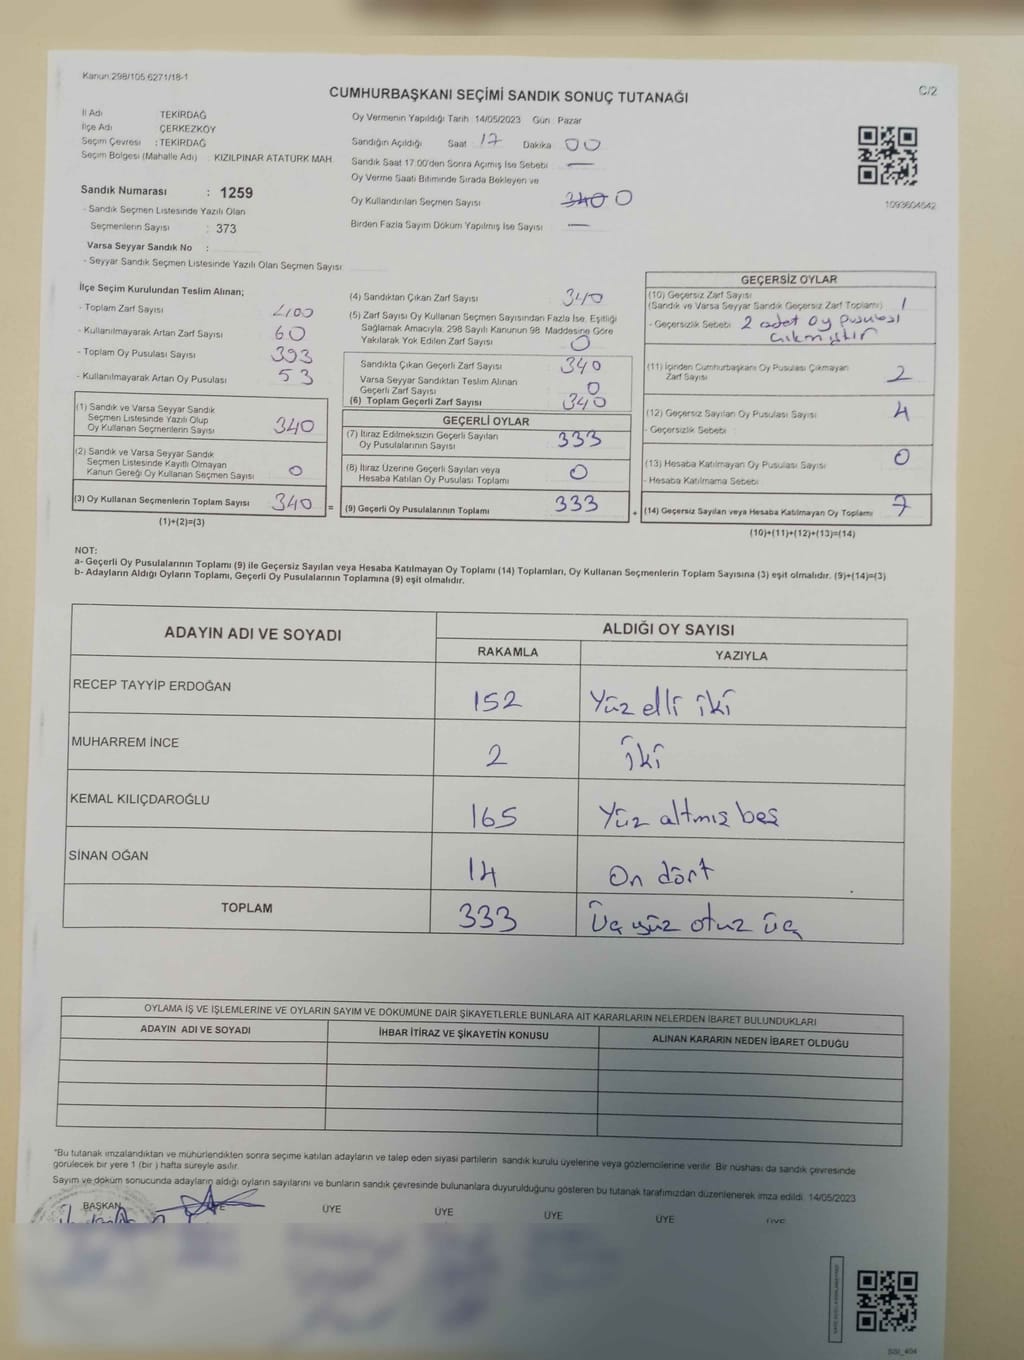 Kanun:298/105.6271/18-1
CUMHURBAŞKANI SEÇİMİ SANDIK SONUÇ TUTANAĞI
C/2
İl Adı TEKİRDAĞ
İlçe Adı ÇERKEZKÖY
Seçim Çevresi : TEKİRDAĞ
Seçim Bölgesi (Mahalle Adı) : KIZILPINAR ATATÜRK MAH.
Sandık Numarası : 1259
- Sandık Seçmen Listesinde Yazılı Olan
Seçmenlerin Sayısı : 373
Varsa Seyyar Sandık No :
- Seyyar Sandık Seçmen Listesinde Yazılı Olan Seçmen Sayısı:
Oy Vermenin Yapıldığı Tarih : 14/05/2023 Gün : Pazar
Sandığın Açıldığı Saat 17 Dakika 00
Sandık Saat 17:00'den Sonra Açılmış İse Sebebi —
Oy Verme Saati Bitiminde Sırada Bekleyen ve
Oy Kullandırılan Seçmen Sayısı 340 0
Birden Fazla Sayım Döküm Yapılmış İse Sayısı —
1093604642
İlçe Seçim Kurulundan Teslim Alınan;
- Toplam Zarf Sayısı 400
- Kullanılmayarak Artan Zarf Sayısı 60
- Toplam Oy Pusulası Sayısı 393
- Kullanılmayarak Artan Oy Pusulası 53
(1) Sandık ve Varsa Seyyar Sandık
Seçmen Listesinde Yazılı Olup
Oy Kullanan Seçmenlerin Sayısı 340
(2) Sandık ve Varsa Seyyar Sandık
Seçmen Listesinde Kayıtlı Olmayan
Kanun Gereği Oy Kullanan Seçmen Sayısı 0
(3) Oy Kullanan Seçmenlerin Toplam Sayısı 340 =
(1)+(2)=(3)
(4) Sandıktan Çıkan Zarf Sayısı 340
(5) Zarf Sayısı Oy Kullanan Seçmen Sayısından Fazla İse, Eşitliği
Sağlamak Amacıyla, 298 Sayılı Kanunun 98. Maddesine Göre
Yakılarak Yok Edilen Zarf Sayısı 0
Sandıkta Çıkan Geçerli Zarf Sayısı 340
Varsa Seyyar Sandıktan Teslim Alınan
Geçerli Zarf Sayısı 0
(6) Toplam Geçerli Zarf Sayısı 340
GEÇERLİ OYLAR
(7) İtiraz Edilmeksizin Geçerli Sayılan
Oy Pusulalarının Sayısı 333
(8) İtiraz Üzerine Geçerli Sayılan veya
Hesaba Katılan Oy Pusulası Toplamı 0
(9) Geçerli Oy Pusulalarının Toplamı 333 +
GEÇERSİZ OYLAR
(10) Geçersiz Zarf Sayısı
(Sandık ve Varsa Seyyar Sandık Geçersiz Zarf Toplamı) 1
- Geçersizlik Sebebi 2 adet oy pusulası
çıkmıştır
(11) İçinden Cumhurbaşkanı Oy Pusulası Çıkmayan
Zarf Sayısı 2
(12) Geçersiz Sayılan Oy Pusulası Sayısı 4
- Geçersizlik Sebebi
(13) Hesaba Katılmayan Oy Pusulası Sayısı 0
- Hesaba Katılmama Sebebi
(14) Geçersiz Sayılan veya Hesaba Katılmayan Oy Toplamı 7
(10)+(11)+(12)+(13)=(14)
NOT:
a- Geçerli Oy Pusulalarının Toplamı (9) ile Geçersiz Sayılan veya Hesaba Katılmayan Oy Toplamı (14) Toplamları, Oy Kullanan Seçmenlerin Toplam Sayısına (3) eşit olmalıdır. (9)+(14)=(3)
b- Adayların Aldığı Oyların Toplamı, Geçerli Oy Pusulalarının Toplamına (9) eşit olmalıdır.
ADAYIN ADI VE SOYADI ALDIĞI OY SAYISI
RAKAMLA YAZIYLA
RECEP TAYYİP ERDOĞAN 152 Yüz elli iki
MUHARREM İNCE 2 iki
KEMAL KILIÇDAROĞLU 165 Yüz altmış beş
SİNAN OĞAN 14 On dört
TOPLAM 333 Üç yüz otuz üç
OYLAMA İŞ VE İŞLEMLERİNE VE OYLARIN SAYIM VE DÖKÜMÜNE DAİR ŞİKAYETLERLE BUNLARA AİT KARARLARIN NELERDEN İBARET BULUNDUKLARI
ADAYIN ADI VE SOYADI İHBAR İTİRAZ VE ŞİKAYETİN KONUSU ALINAN KARARIN NEDEN İBARET OLDUĞU
*Bu tutanak imzalandıktan ve mühürlendikten sonra seçime katılan adayların ve talep eden siyasi partilerin sandık kurulu üyelerine veya gözlemcilerine verilir. Bir nushası da sandık çevresinde
görülecek bir yere 1 (bir ) hafta süreyle asılır.
Sayım ve döküm sonucunda adayların aldığı oyların sayılarını ve bunların sandık çevresinde bulunanlara duyurulduğunu gösteren bu tutanak tarafımızdan düzenlenerek imza edildi. 14/05/2023
BAŞKAN ÜYE ÜYE ÜYE ÜYE ÜYE